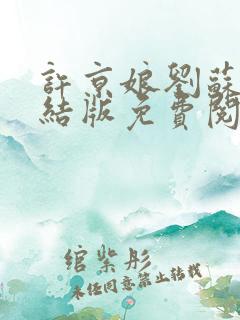 許京娘劉蘇
結版免費閱
綰紫彤
未经同意禁止转载